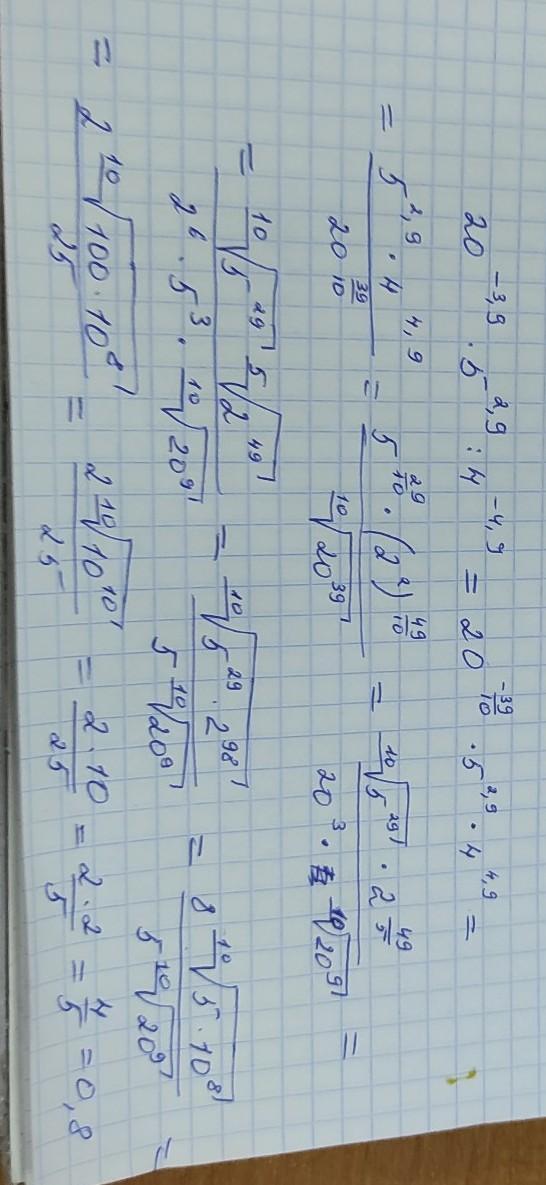 20^{-3,9} · 5^{2,9} : 4^{-4,9} = 20^{-\frac{39}{10}} · 5^{2,9} · 4^{4,9} =
= \frac{5^{2,9} · 4^{4,9}}{20^{\frac{39}{10}}} = \frac{5^{\frac{29}{10}} · (2^2)^{\frac{49}{10}}}{\sqrt[10]{20^{39}}} = \frac{\sqrt[10]{5^{29}} · 2^{\frac{49}{5}}}{20^3 · \sqrt[10]{20^9}} =
= \frac{\sqrt[10]{5^{29}} \sqrt[5]{2^{49}}}{2^6 · 5^3 · \sqrt[10]{20^9}} = \frac{\sqrt[10]{5^{29} · 2^{98}}}{5 \sqrt[10]{20^9}} = \frac{8 \sqrt[10]{5 · 10^8}}{5 \sqrt[10]{20^9}} =
= \frac{2 \sqrt[10]{100 · 10^8}}{25} = \frac{2 \sqrt[10]{10^{10}}}{25} = \frac{2 · 10}{25} = \frac{2 · 2}{5} = \frac{4}{5} = 0,8